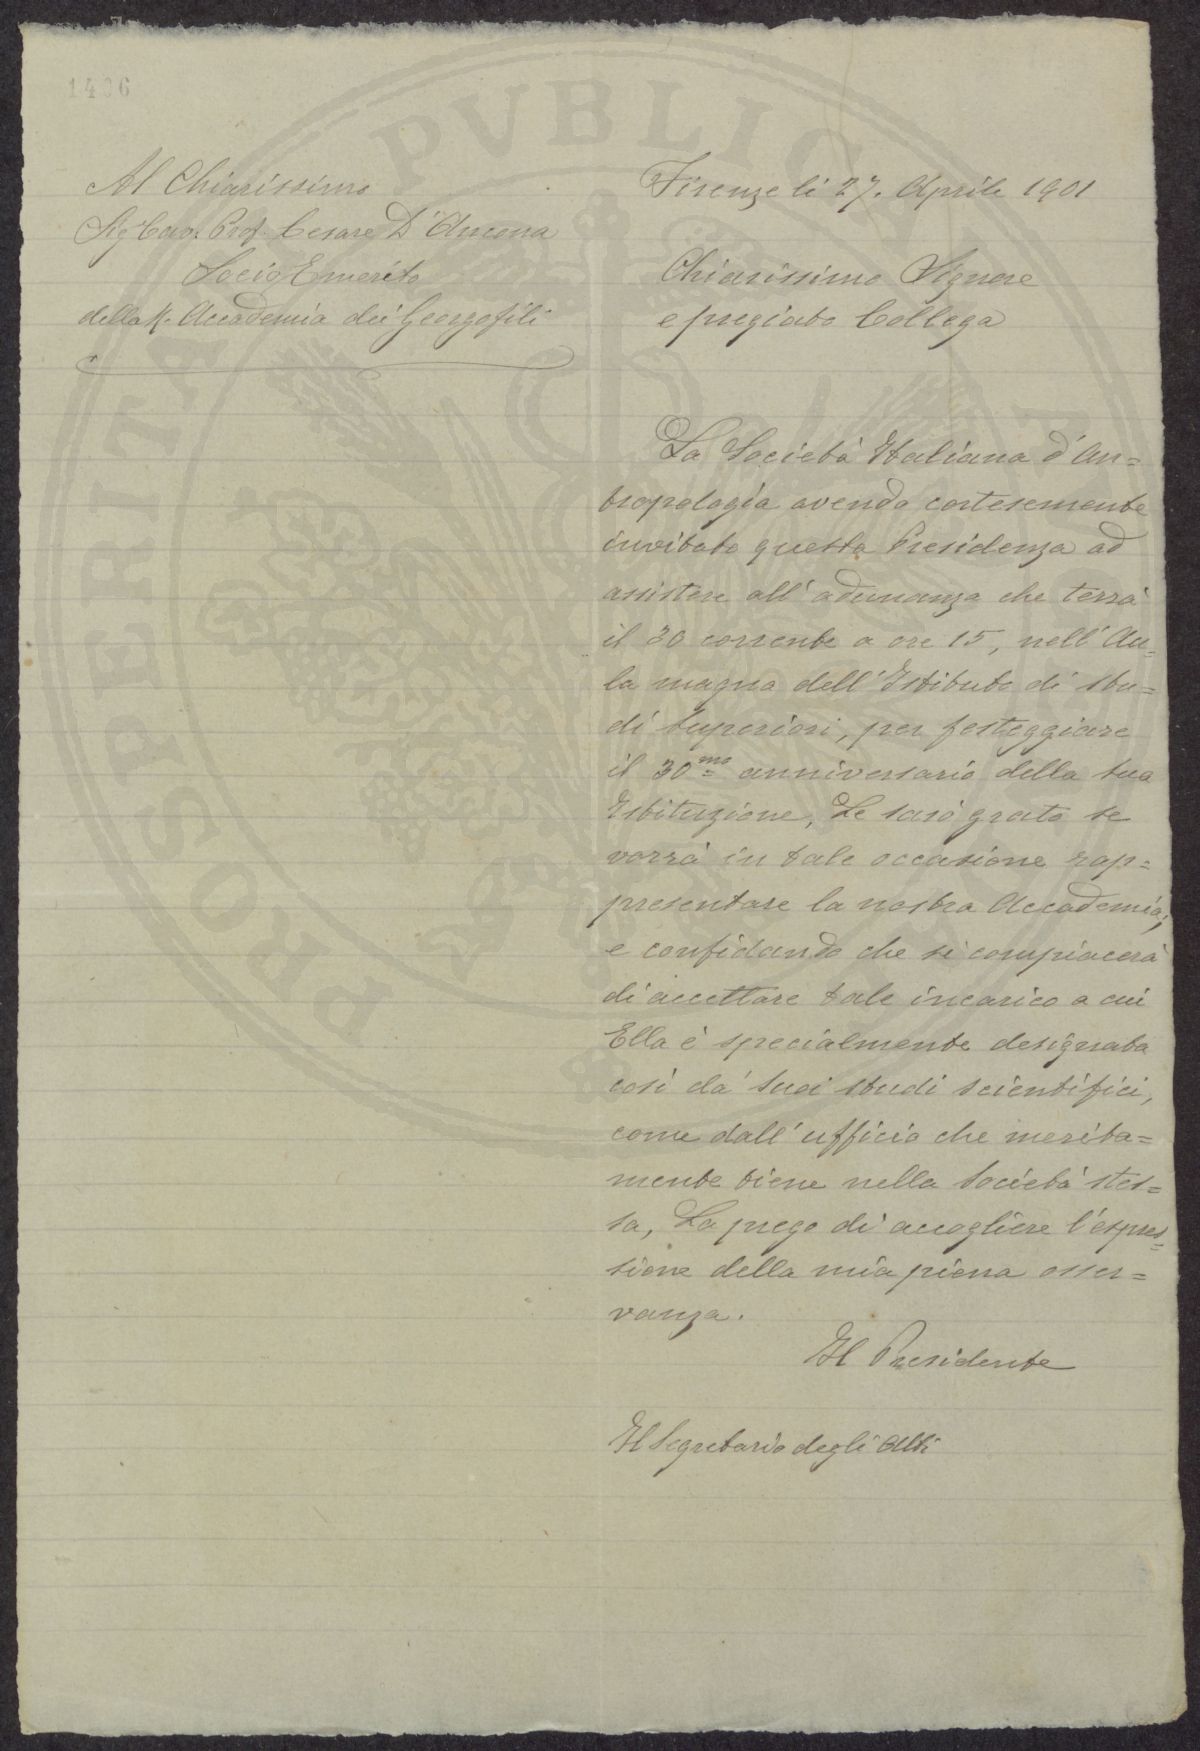 1406
Al Chiarissimo
Sig Cav. Prof. Cesare D'Ancona
Socio Emerito
della R. Accademia dei Georgofili
Firenze li 27. Aprile 1901
Chiarissimo Signore
e pregiato Collega
La Società Italiana d'An=
tropologia avendo cortesemente
invitato questa Presidenza ad
assistere all'adunanza che terrà
il 30 corrente a ore 15, nell'Au=
la magna dell'Istituto di stu=
di superiori, per festeggiare
il 30mo anniversario della sua
Istituzione, Le sarò grato se
vorrà in tale occasione rap=
presentare la nostra Accademia;
e confidando che si compiacerà
di accettare tale incarico a cui
Ella è specialmente designata
così da' suoi studi scientifici,
come dall'ufficio che merita=
mente tiene nella Società stes=
sa, La prego di accogliere l'espres=
sione della mia piena osser=
vanza.
Il Presidente
Il Segretario degli Atti
PVBLICAE
PROSPERITATI